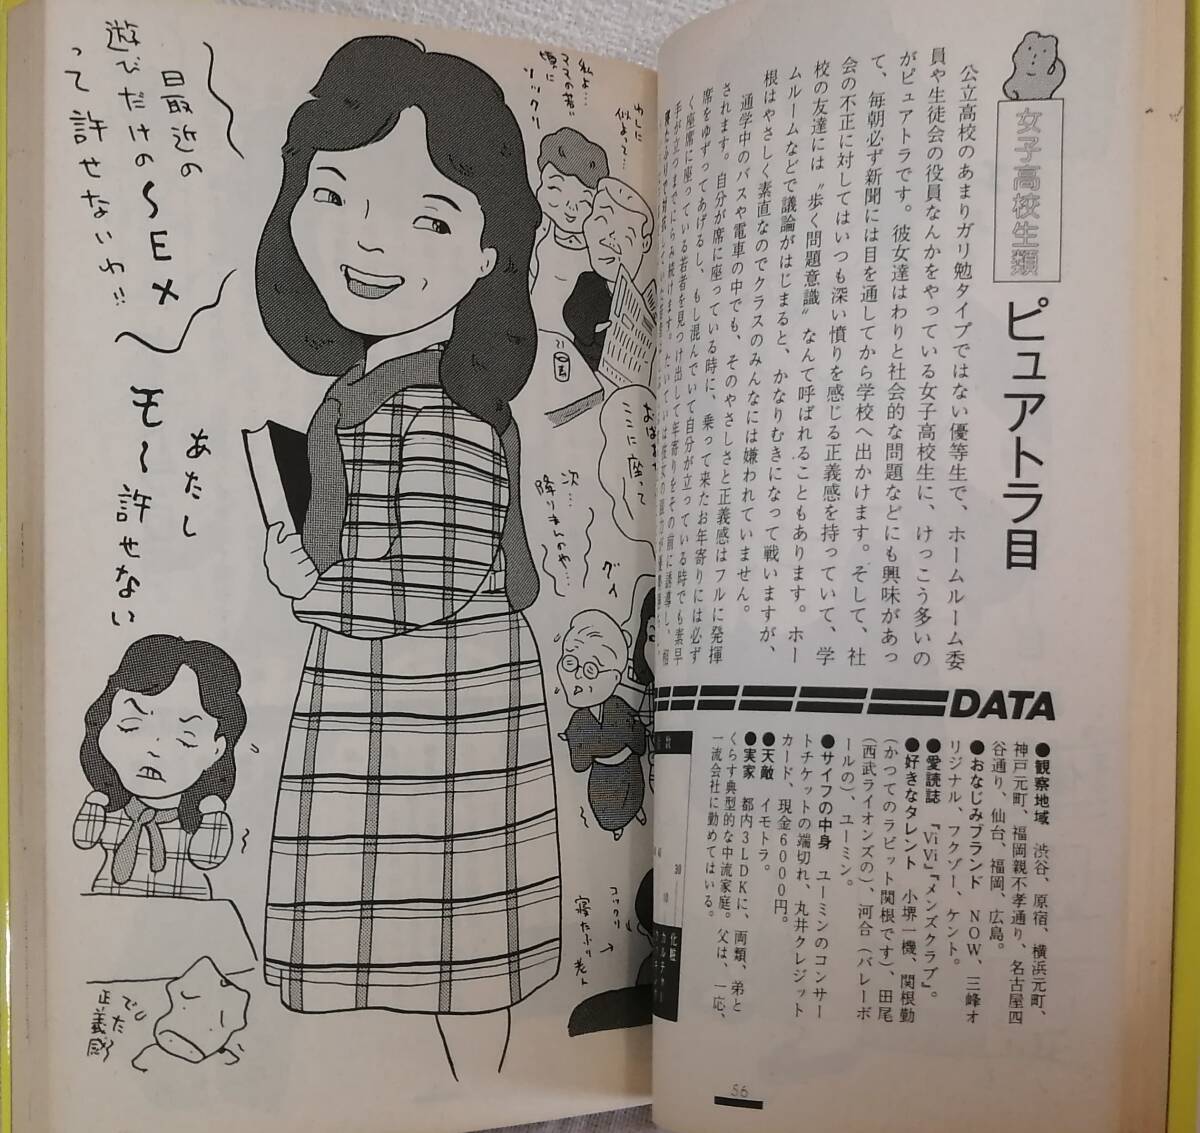 女子高校生類
ピュアトラ目
公立高校のあまりガリ勉タイプではない優等生で、ホームルーム委
員や生徒会の役員なんかをやっている女子高校生に、けっこう多いの
がピュアトラです。彼女達はわりと社会的な問題などにも興味があっ
て、毎朝必ず新聞には目を通してから学校へ出かけます。そして、社
会の不正に対してはいつも深い憤りを感じる正義感を持っていて、学
校の友達には〝歩く問題意識〟なんて呼ばれることもあります。ホー
ムルームなどで議論がはじまると、かなりむきになって戦いますが、
根はやさしく素直なのでクラスのみんなには嫌われていません。
通学中のバスや電車の中でも、そのやさしさと正義感はフルに発揮
されます。自分が席に座っている時に、乗って来たお年寄りには必ず
席をゆずってあげるし、もし混んでいて自分が立っている時でも素早
く座席に座っている若者を見つけ出して年寄りをその前に誘導し、相
手が立つまでにらみ続けます。たいていは彼女の
DATA
●観察地域 渋谷、原宿、横浜元町、
神戸元町、福岡親不孝通り、名古屋四
谷通り、仙台、福岡、広島。
●おなじみブランド NOW、三峰オ
リジナル、フクゾー、ケント。
●愛読誌 『ViVi』『メンズクラブ』。
●好きなタレント 小堺一機、関根勤
(かつてのラビット関根です)、田尾
(西武ライオンズの)、河合(バレーボ
ールの)、ユーミン。
●サイフの中身 ユーミンのコンサー
トチケットの端切れ、丸井クレジット
カード、現金6000円。
●天敵 イモトラ。
●実家 都内3LDKに、両類、弟と
くらす典型的な中流家庭。父は、一応、
一流会社に勤めてはいる。
30
10
化粧
56
わしに
似よって…
私よ…
ママの若い
頃に
ソックリ
ここに座って
次…
降りませんのや…
グイ
コックリ
寝たふり
最近の
遊びだけのSEX
って許せないわ!!
あたし
モ〜許せない
でた
正義感